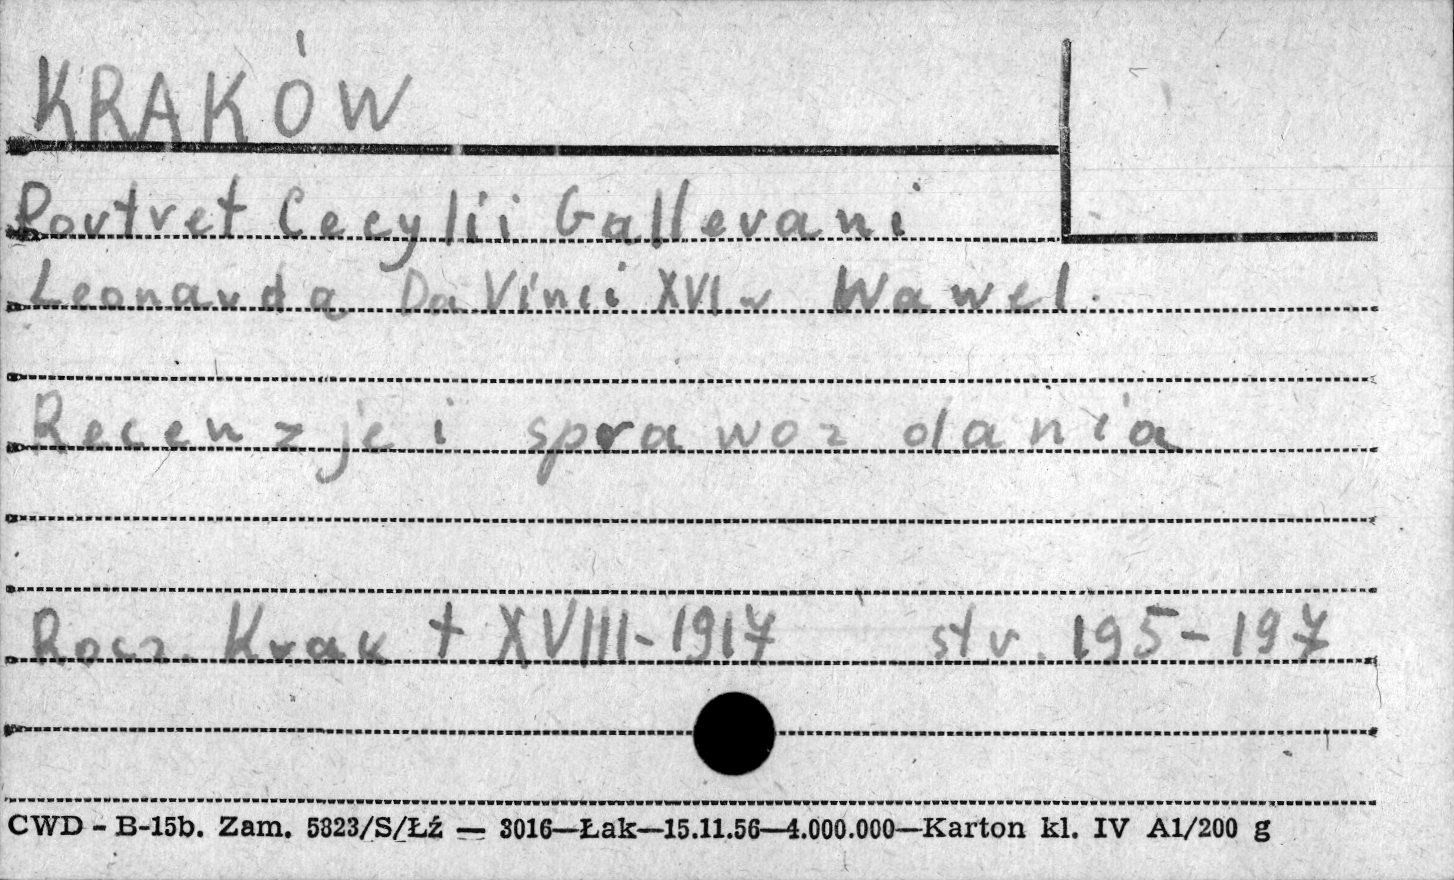 KRAKÓW
Portret Cecylii Gallerani
Leonarda Da Vinci XVI w Wawel.
Recenzje i sprawozdania
Rocz. Krak t XVIII-1917 str. 195-197
CWD - B-15b. Zam. 5823/S/Łź — 3016—Łak—15.11.56—4.000.000—Karton kl. IV A1/200 g